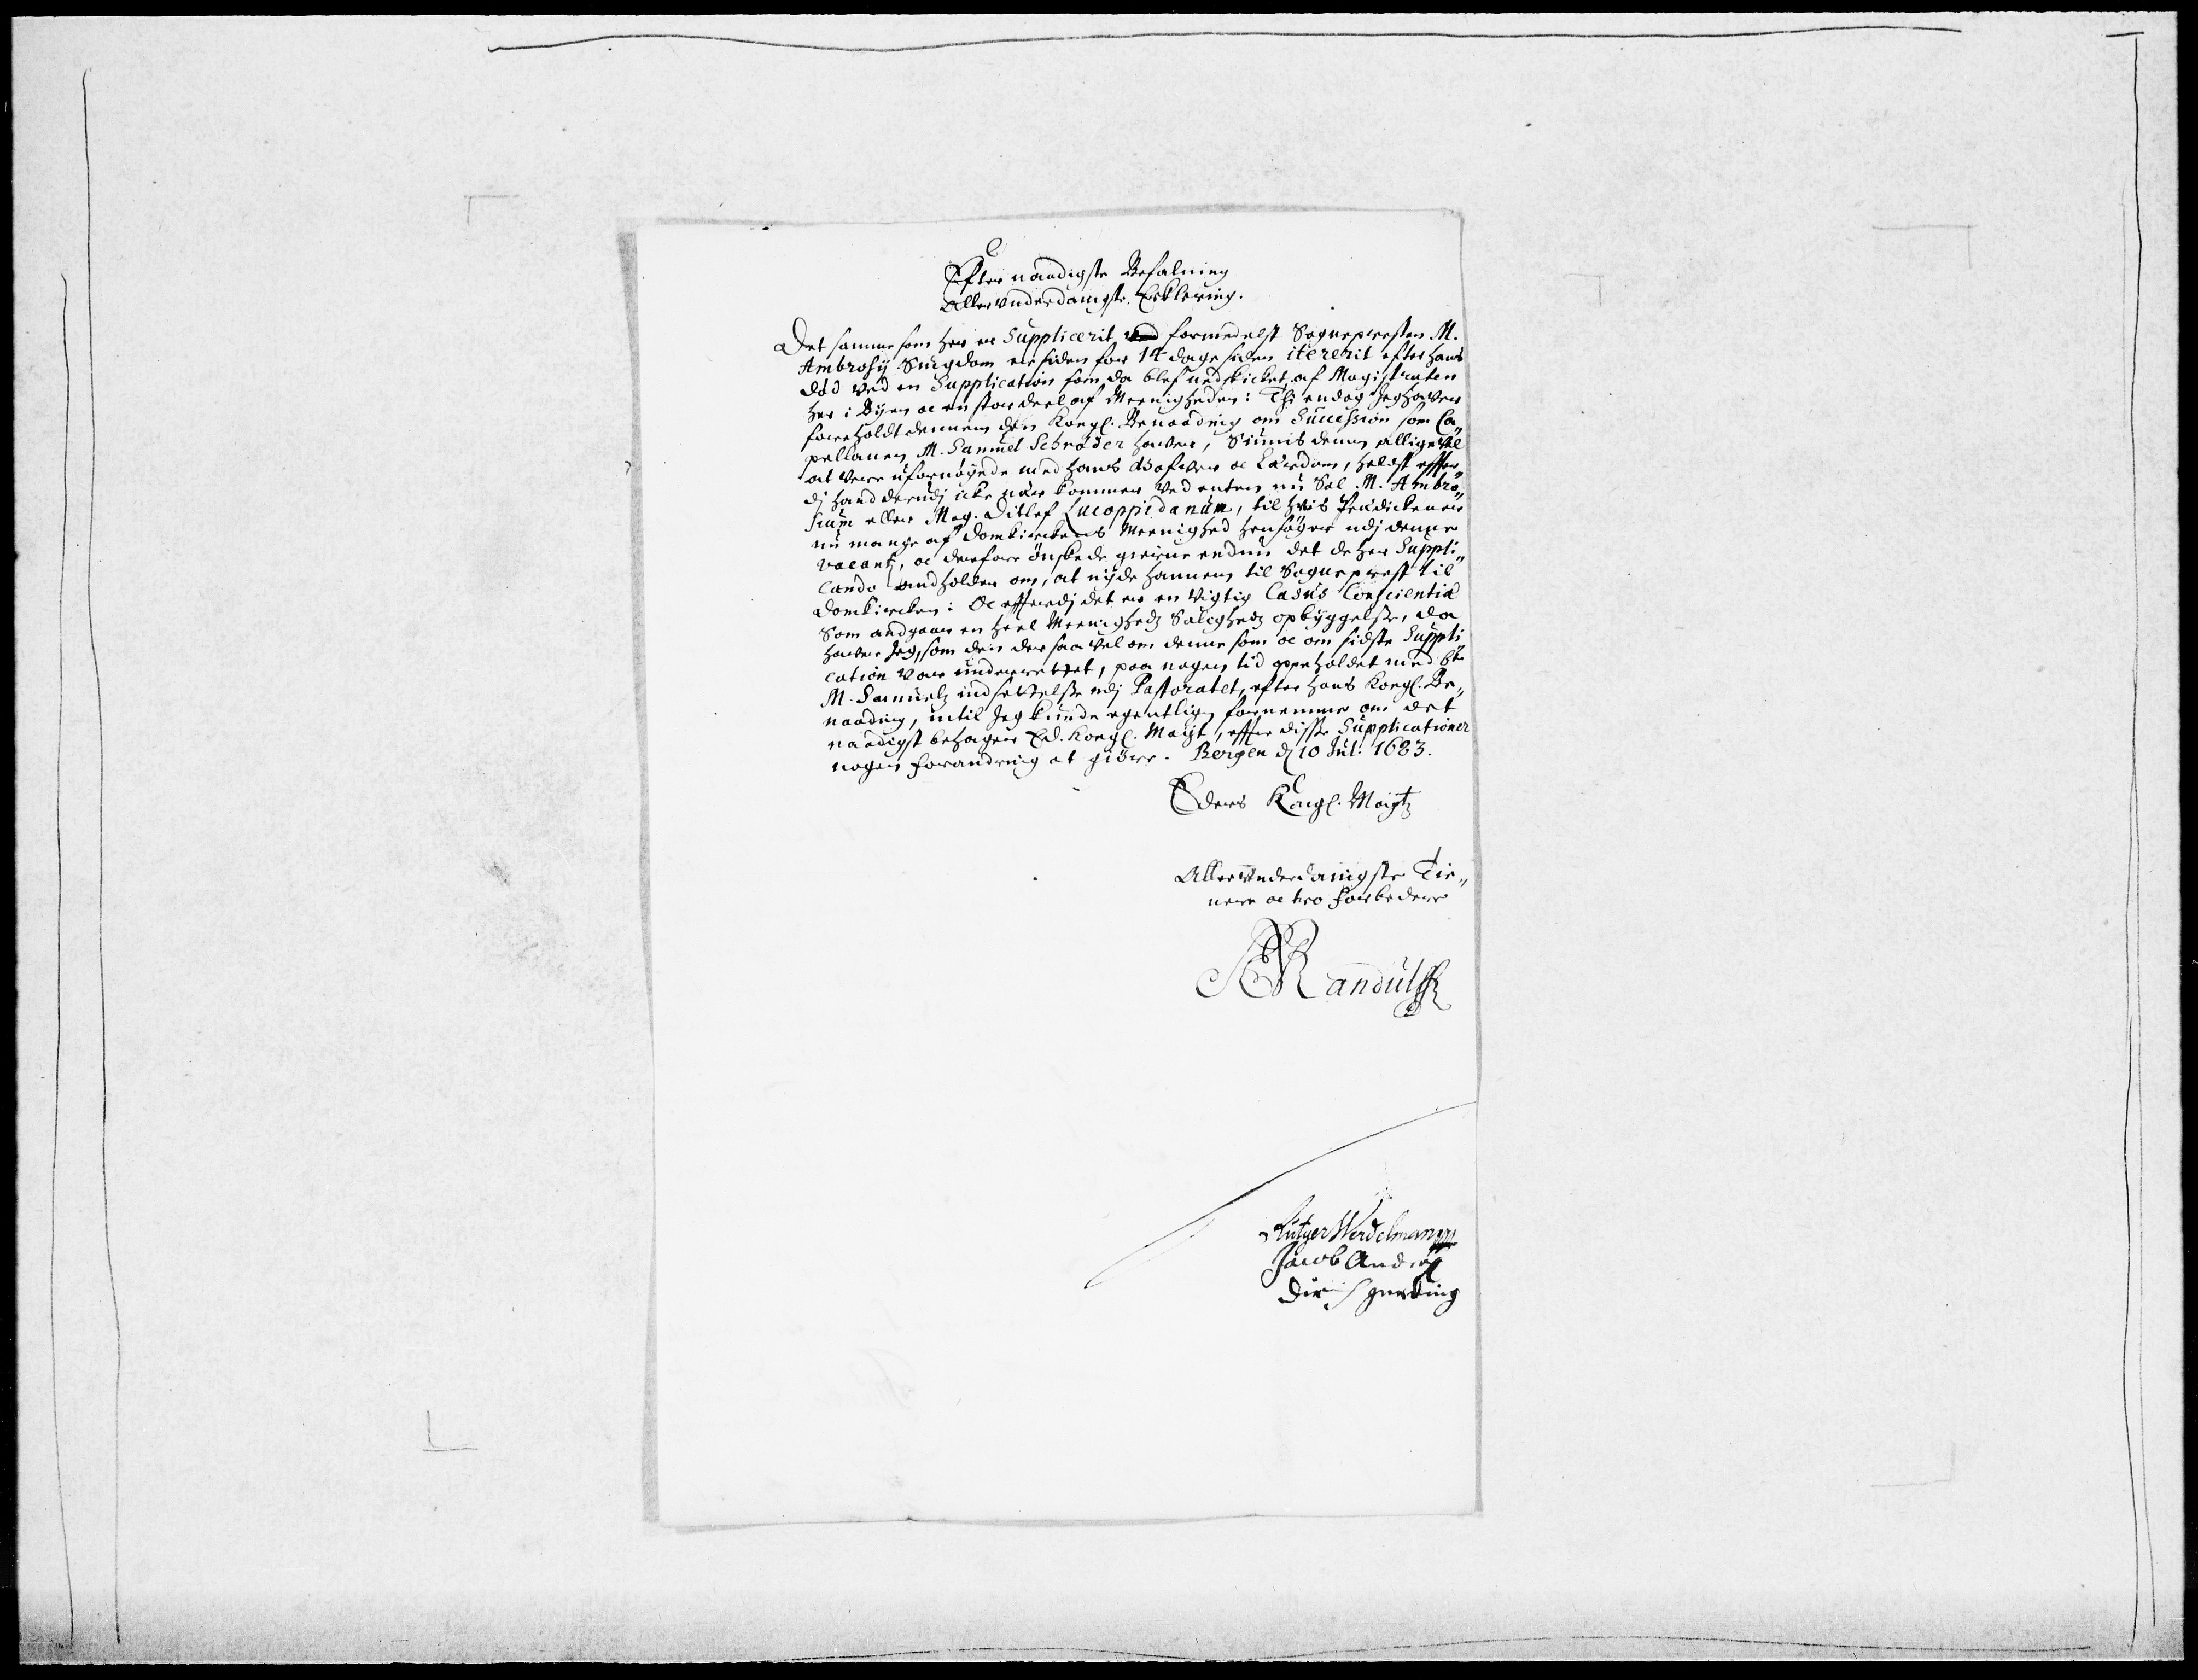 Efter naadigste Befalning
Allerunderdanigste Erklering.
Det samme som her er Supplicerit, formedelst Sognepresten M.
Ambrosij Siugdom er siden for 14 dage siden itererit efter hans
død ved en Supplication som da blef nedskicket af Magistraten
her i Byen oc en stor deel af Meenigheden: Thi endog Jeg haver
foreholdt dennem den Kongl. Benaading om Succession som Ca„
pellanen M. Samuel Schrøder haver, Siunis dennem alligevel
at vere ufornøyede med hans Gafver oc Lærdom, heldst effter„
dj hand derudj icke nær kommer ved enten nu Sal. M. Ambro„
sium eller Mag. Ditlef Lucoppidanum, til hvis Prædickener
nu mange af Domkirckens Meenighed hensøger udj denne
vacantz, oc derfore ønskede gierne endnu det de her Suppli„
cando andholder om, at nyde hannem til Sogneprest til
Domkircken: Oc effterdj det er en vigtig Casus Conscientiæ
Som andgaar en heel Meenigheds Saligheds opbyggelse, da
haver Jeg, som den der saa vel om denne som oc om sidste Suppli„
cation var underrettet, paa nogen tid opholdet med bte
M. Samuels indsettelse udj Pastoratet, efter hans Kongl. Be„
naading, intil Jeg kunde egentligen fornemme om det
naadigst behager Ed. Kongl. Mayt, effter disse Supplicationer
nogen forandring at giøre. Bergen d 10 Jul: 1683.
Eders Kongl. Maytz
Allerunderdanigste Tie„
nere oc tro forbedere
Randulff
Rutger Werdelman
Jacob Andr